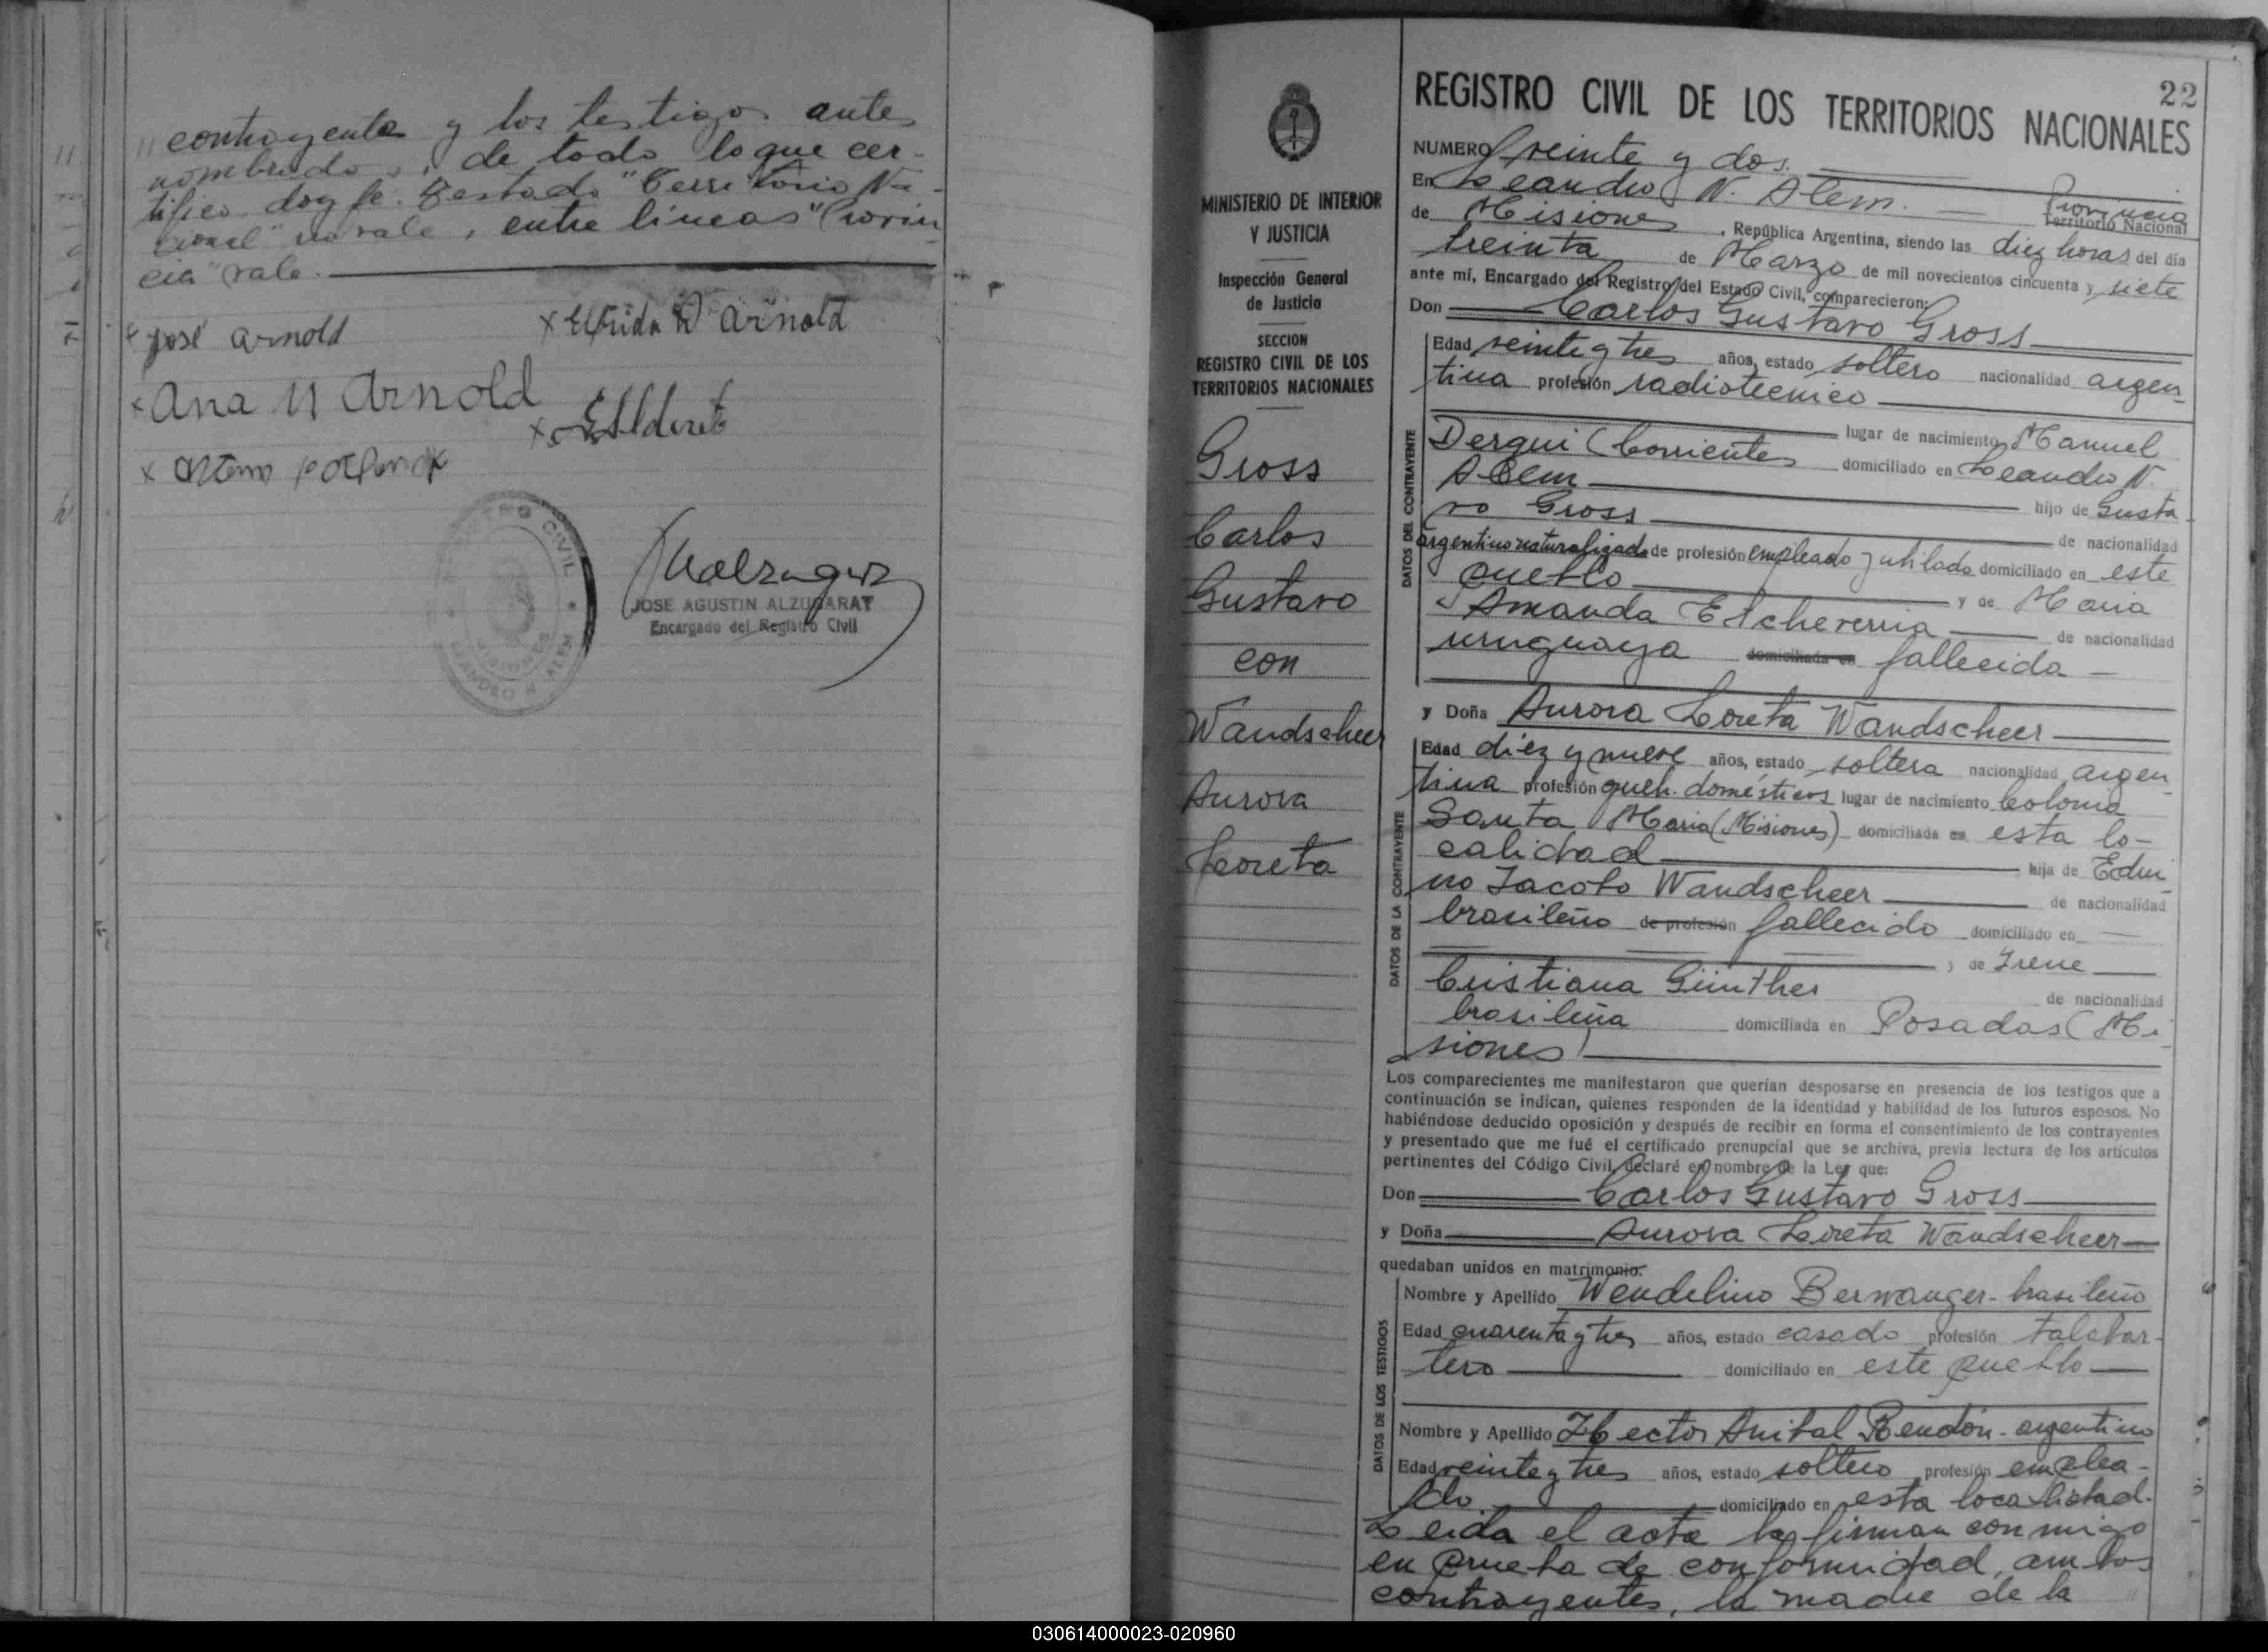 " contrayentes y los testigos antes
nombrados, de todo lo que cer-
tifico doy fe. Testado "Territorio Na-
cional" no vale, entre líneas "Provin
cia" vale.
x José Arnold
x Elfrida D Arnold
x Ana M Arnold
x EAlderete
x
REGISTRO CIVIL
MISIONES
LEANDRO N. ALEM
JOSE AGUSTIN ALZUGARAT
Encargado del Registro Civil
MINISTERIO DE INTERIOR
Y JUSTICIA
Inspección General
de Justicia
SECCION
REGISTRO CIVIL DE LOS
TERRITORIOS NACIONALES
Gross
Carlos
Gustavo
con
Wandscheer
Aurora
Loreta
22
REGISTRO CIVIL DE LOS TERRITORIOS NACIONALES
NUMERO Veinte y dos.
En Leandro N. Alem. Provincia
Territorio Nacional
de Misiones, República Argentina, siendo las diez horas del día
treinta de Marzo de mil novecientos cincuenta y siete
ante mí, Encargado del Registro del Estado Civil, comparecieron:
Don Carlos Gustavo Gross
DATOS DEL CONTRAYENTE
Edad veinte y tres años, estado soltero nacionalidad argen
tina profesión radiotecnico
lugar de nacimiento Manuel
Derqui (Corrientes domiciliado en Leandro N.
Alem
hijo de Gusta-
vo Gross de nacionalidad
argentino naturalizado de profesión empleado jubilado domiciliado en este
pueblo y de Maria
Amanda Etcheverria de nacionalidad
uruguaya domiciliada en fallecida
y Doña Aurora Loreta Wandscheer
DATOS DE LA CONTRAYENTE
Edad diez y nueve años, estado soltera nacionalidad argen
tina profesión queh. domésticos lugar de nacimiento Colonia
Santa Maria (Misiones) domiciliada en esta lo-
calidad hija de Edui
no Jacobo Wandscheer de nacionalidad
brasileño de profesión fallecido domiciliado en
y de Irene
Cristiana Günther de nacionalidad
brasileña domiciliada en Posadas (Mi
siones)
Los comparecientes me manifestaron que querían desposarse en presencia de los testigos que a
continuación se indican, quienes responden de la identidad y habilidad de los futuros esposos. No
habiéndose deducido oposición y después de recibir en forma el consentimiento de los contrayentes
y presentado que me fué el certificado prenupcial que se archiva, previa lectura de los artículos
pertinentes del Código Civil, declaré en nombre de la Ley que:
Don Carlos Gustavo Gross
y Doña Aurora Loreta Wandscheer
quedaban unidos en matrimonio.
DATOS DE LOS TESTIGOS
Nombre y Apellido Wendelino Berwanger - brasileño
Edad cuarenta y tres años, estado casado profesión talabar-
tero domiciliado en este pueblo
Nombre y Apellido Hector Anibal Rendón - argentino
Edad veinte y tres años, estado soltero profesión emplea-
do. domiciliado en esta localidad.
Leida el acta la firman conmigo
en prueba de conformidad, ambos
contrayentes, la madre de la "
030614000023-020960